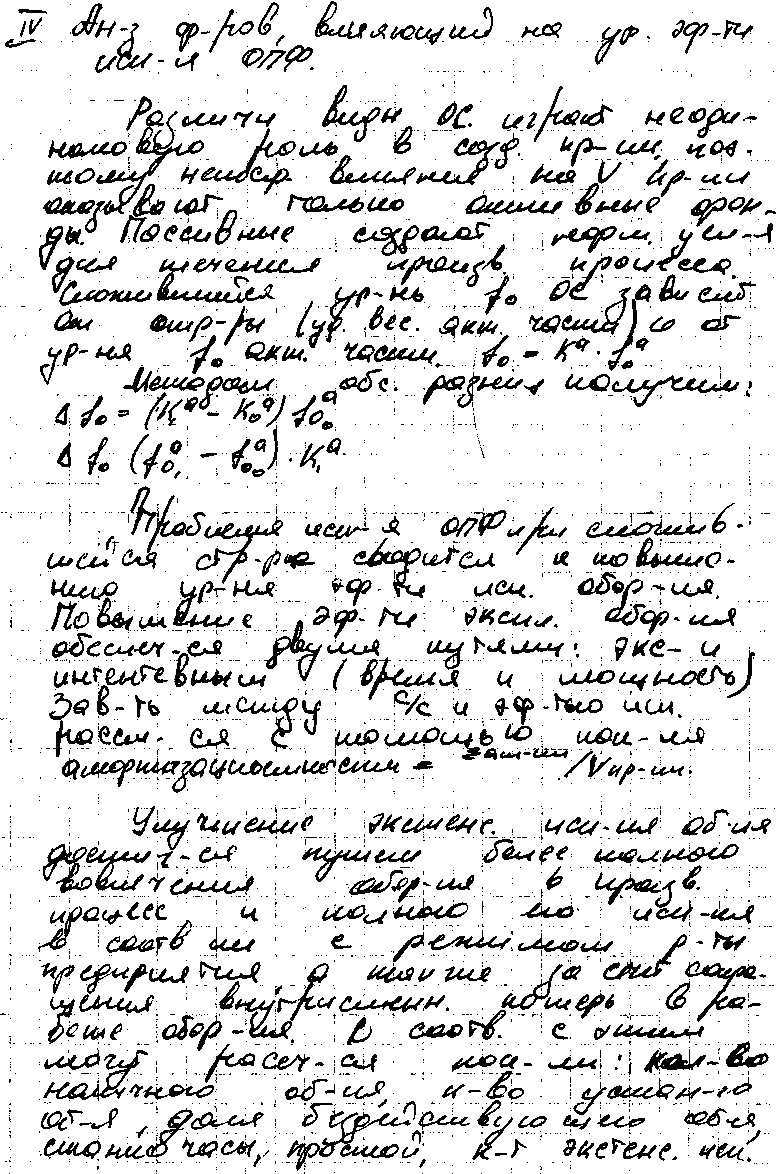 IV Ан-з ф-ров, влияющий на ур. эф-ти
исп-я ОПФ.
Различн виды ОС. играют неоди-
наковую роль в созд. пр-ии, поэ-
тому непоср влияния на V пр-ии
оказывают только активные фон-
ды. Пассивные создают норм. усл-я
для течения произв. процесса.
Сложившийся ур-нь fо ОС зависит
от стр-ры (уд. вес. акт. части) и от
ур-ня fо акт. части. fо = Kᵃ · fоᵃ
Методом абс. разниц получим:
Δ fо = (K₁ᵃ - K₀ᵃ) fо₀ᵃ
Δ fо (fо₁ᵃ - fо₀ᵃ) · K₁ᵃ
Проблема исп-я ОПФ при сложив-
шейся стр-ре сводится к повыше-
нию ур-ня эф-ти исп. обор-ия.
Повышение эф-ти экспл. обор-ия
обеспеч-ся двумя путями: экс- и
интентевным (время и мощность)
Зав-ть между с/с и эф-тью исп.
рассм-ся с помощью пок-ля
амортизациоемкости = /V пр-ии.
Улучшение экстенс. исп-ия об-ия
достиг-ся путем более полного
вовлечения обор-ия в произв.
процесс и полного его исп-ия
в соотв ии с режимом р-ты
предприятия а также за счет сокра-
щения внутрисменн. потерь в ра-
боте обор-ия. В соотв. с этим
могут рассч-ся пок-ли: кол-во
наличного об-ия, к-во устан-го
об-я, доля бездействующего об-я,
станко часы, простой, к-т экстенс. исп.